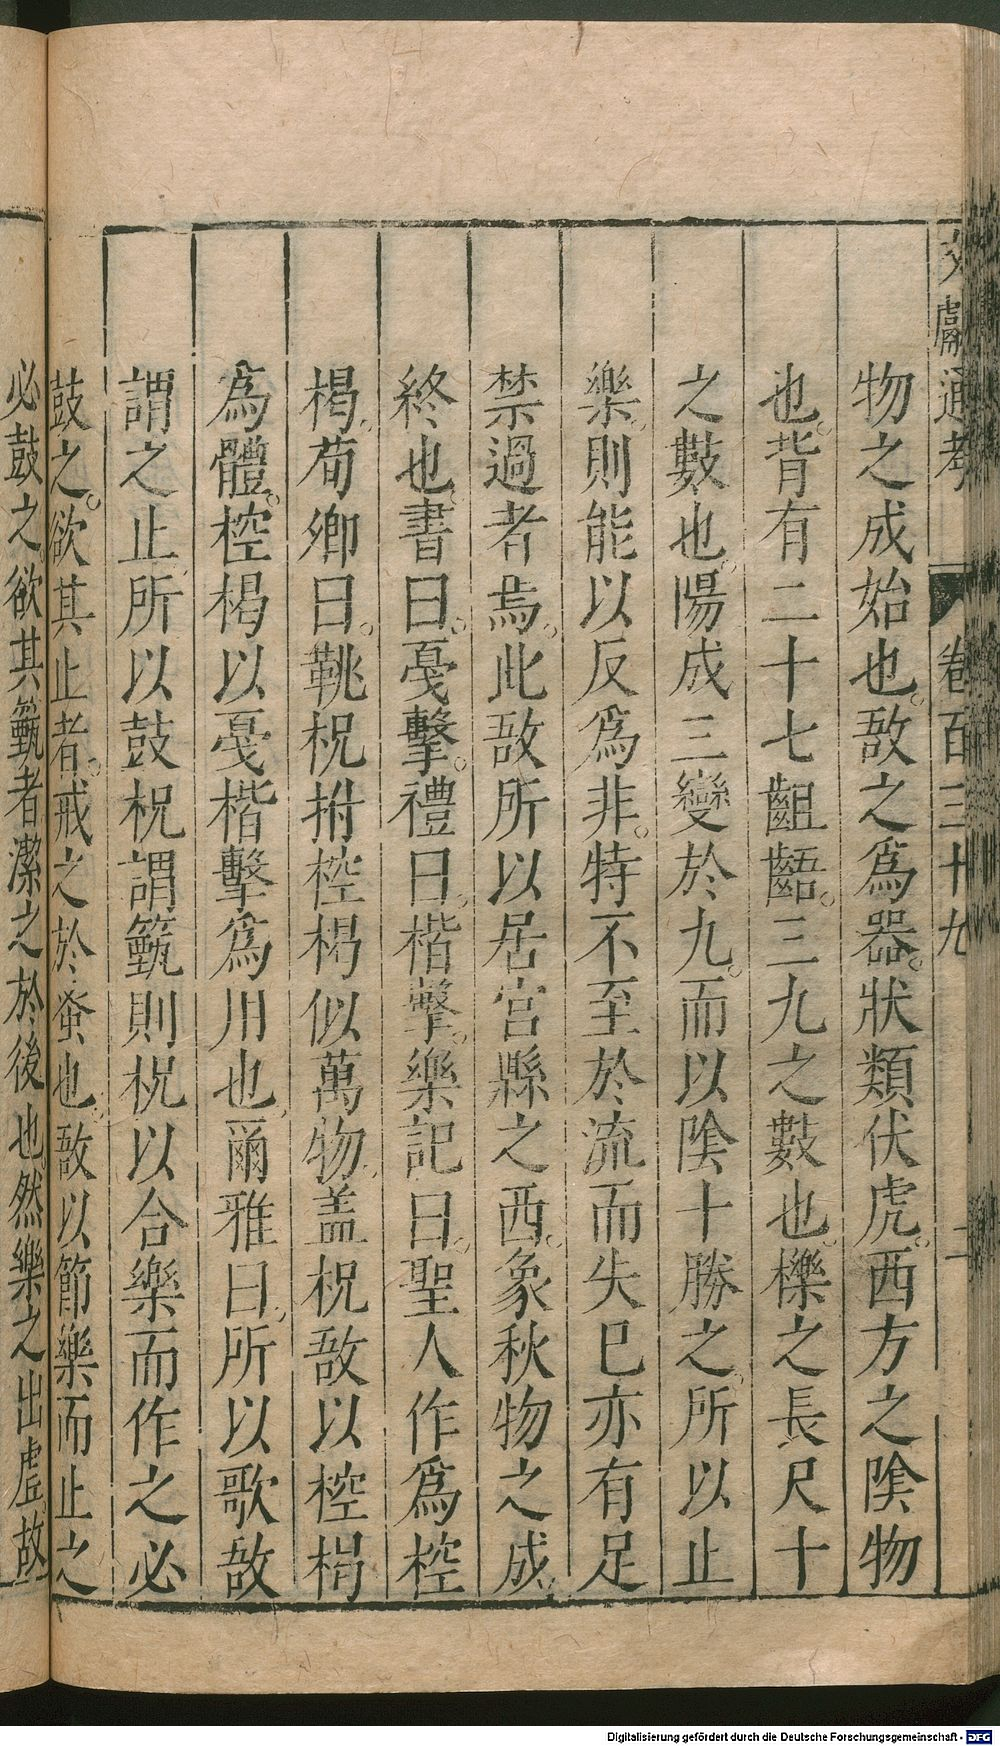 文獻通考 卷百三十九 二
物之成始也。敔之爲器。狀類伏虎。西方之陰物
也。背有二十七齟齬。三九之數也。櫟之長尺十
之數也。陽成三變於九。而以陰十勝之。所以止
樂。則能以反爲非。特不至於流而失已亦有足
禁過者焉。此敔所以居宮縣之西。象秋物之成
終也。書曰。戞擊。禮曰。楷擊。樂記曰。聖人作爲椌
楬。荀卿曰。鞉柷拊椌楬似萬物。盖柷敔以椌楬
爲體。椌楬以戞楷擊爲用也。爾雅曰。所以歌敔
謂之止所以鼓柷謂籈則柷以合樂而作之必
鼓之。欲其止者。戒之於蚤也。敔以節樂而止之
必鼓之。欲其籈者潔之於後也。然樂之出虛。故
Digitalisierung gefördert durch die Deutsche Forschungsgemeinschaft - DFG